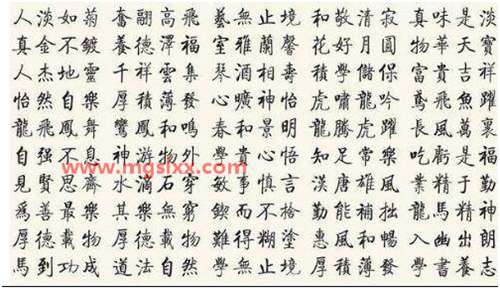 人淡如菊 奮翮高飛 藝無止境 和敬清寂 真味是淡
真金不鍍 養德澤福 室雅蘭馨 花好月圓 物華天寶
人杰地靈 千祥雲集 琴 相壽 學儲 富貴吉祥
怡然自樂 厚積薄發 曠神怡 虎嘯龍吟 鳶飛魚躍
龍飛鳳舞 鸞鳳和鳴 春和景明 龍騰虎躍 長風萬里
自强不息 神游物外 心悟 知足常樂 吃虧是福
www.mgslxx.com
見賢思齊 水滴石穿 敏事慎言 漢唐雄風 業精于勤
爲善最樂 其樂無窮 鍥而不捨 勤能補拙 龍馬精神
厚德載物 厚德載物 難得糊塗 惠風和暢 入幽出朗
馬到功成 道法自然 學無止境 厚積薄發 學書養志